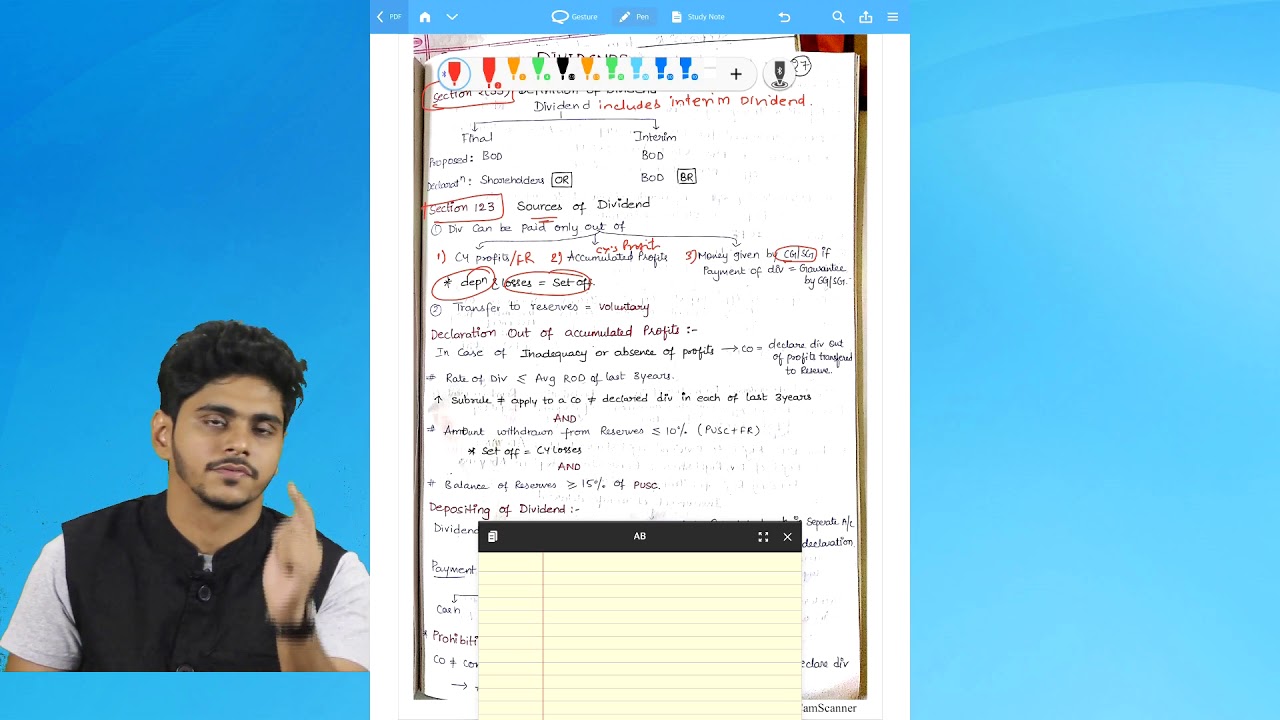 PDF
Gesture
Pen
Study Note
37
Section 2(35) Definition of Dividend
Dividend includes interim Dividend.
Final Interim
Proposed: BOD BOD
Declaratⁿ: Shareholders OR BOD BR
Section 123 Sources of Dividend
① Div Can be paid only out of
CY's Profit
1) CY profits/FR 2) Accumulated Profits 3) Money given by CG/SG if
Payment of div = Grauantee
by CG/SG.
* depⁿ & losses = Set off.
② Transfer to reserves = voluntary
Declaration Out of accumulated Profits :-
In Case of Inadequacy or absence of profits → CO = declare div out
of profits transfered
to Reserve.
# Rate of Div ≤ Avg ROD of last 3years.
↑ Subrule ≠ apply to a co ≠ declared div in each of last 3years
AND
# Amount withdrawn from Reserves ≤ 10% (PUSC+FR)
* Set off = CY losses
AND
# Balance of Reserves ≥ 15% of PUSC.
Depositing of Dividend :-
Dividend Seperate A/c
declaration.
AB
Payment
Cash
* Prohibiti
CO ≠ con eclare div
→
amScanner